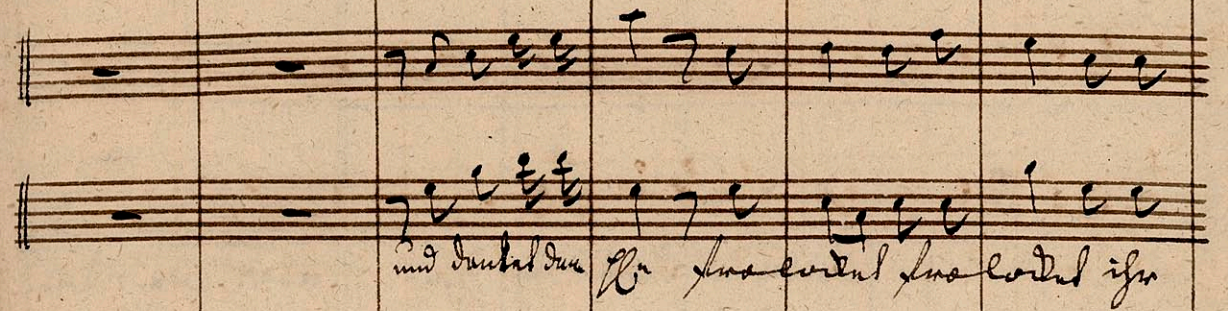 und danket dem Hℓn frolocket frolocket ihr